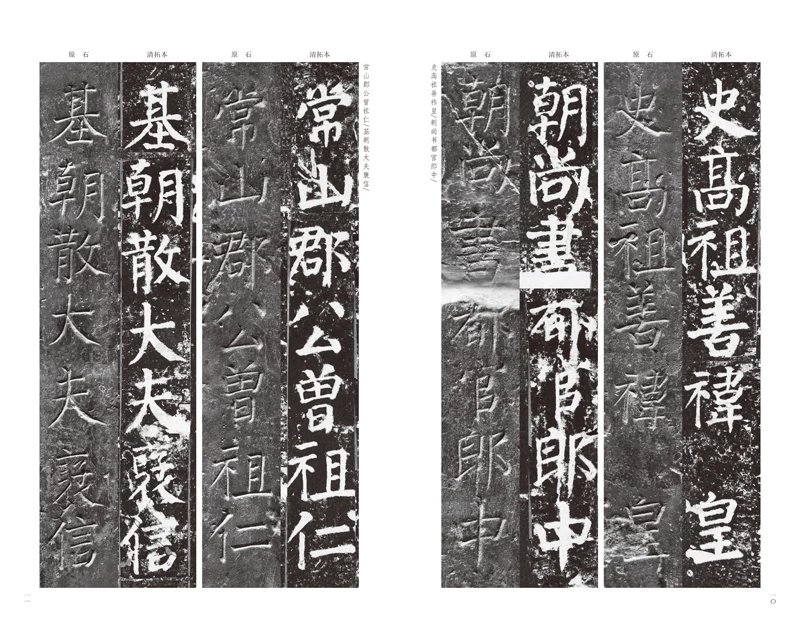 清拓本
史高祖善禕皇
原石
史高祖善禕皇
清拓本
朝尚書都官郎中
原石
朝尚書都官郎中
史高祖善祎皇/朝尚书都官郎中/
一〇
常山郡公曾祖仁/基朝散大夫褒信/
清拓本
常山郡公曾祖仁
原石
常山郡公曾祖仁
清拓本
基朝散大夫襃信
原石
基朝散大夫襃信
一一